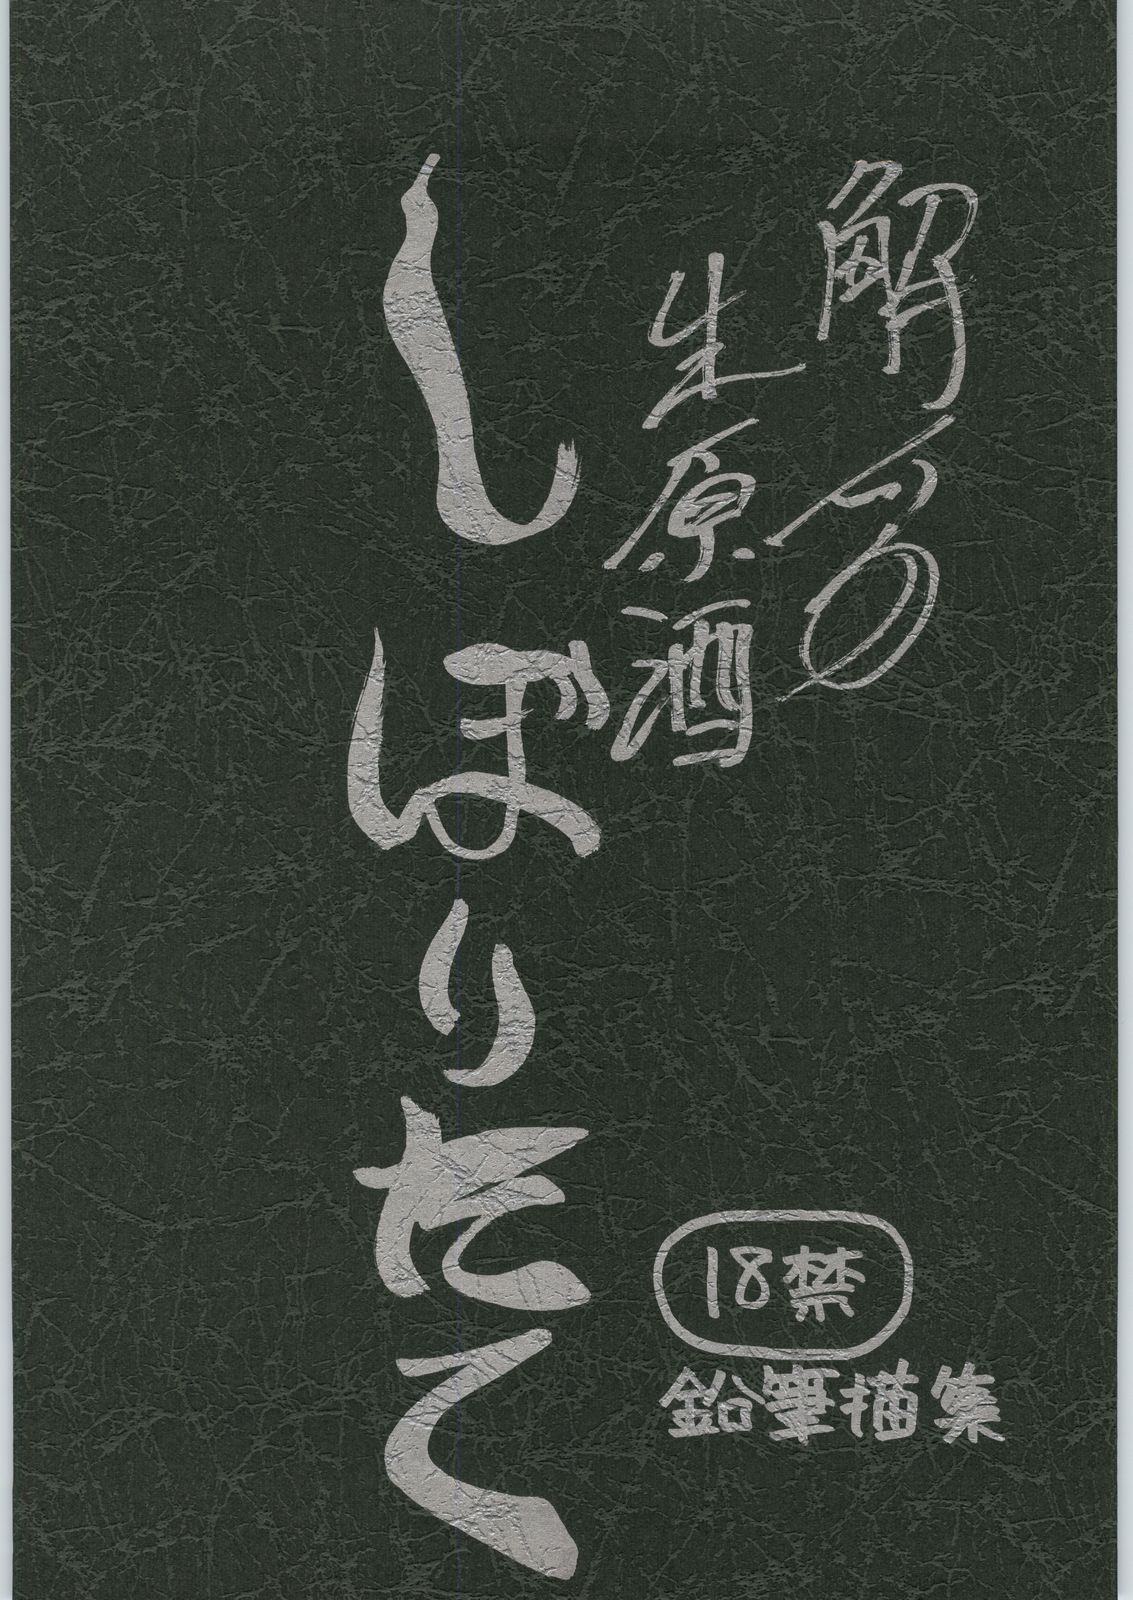 生原酒
しぼりたて
18禁
鉛筆描集